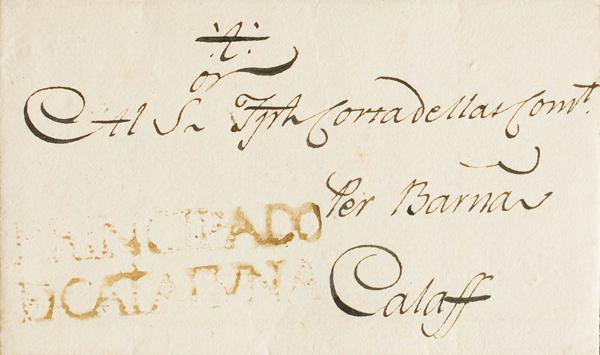 .t.
Al S.or Jph Cortadellas Comt.
Per Barna
PRINCIPADO
D CATALUÑA
Calaff